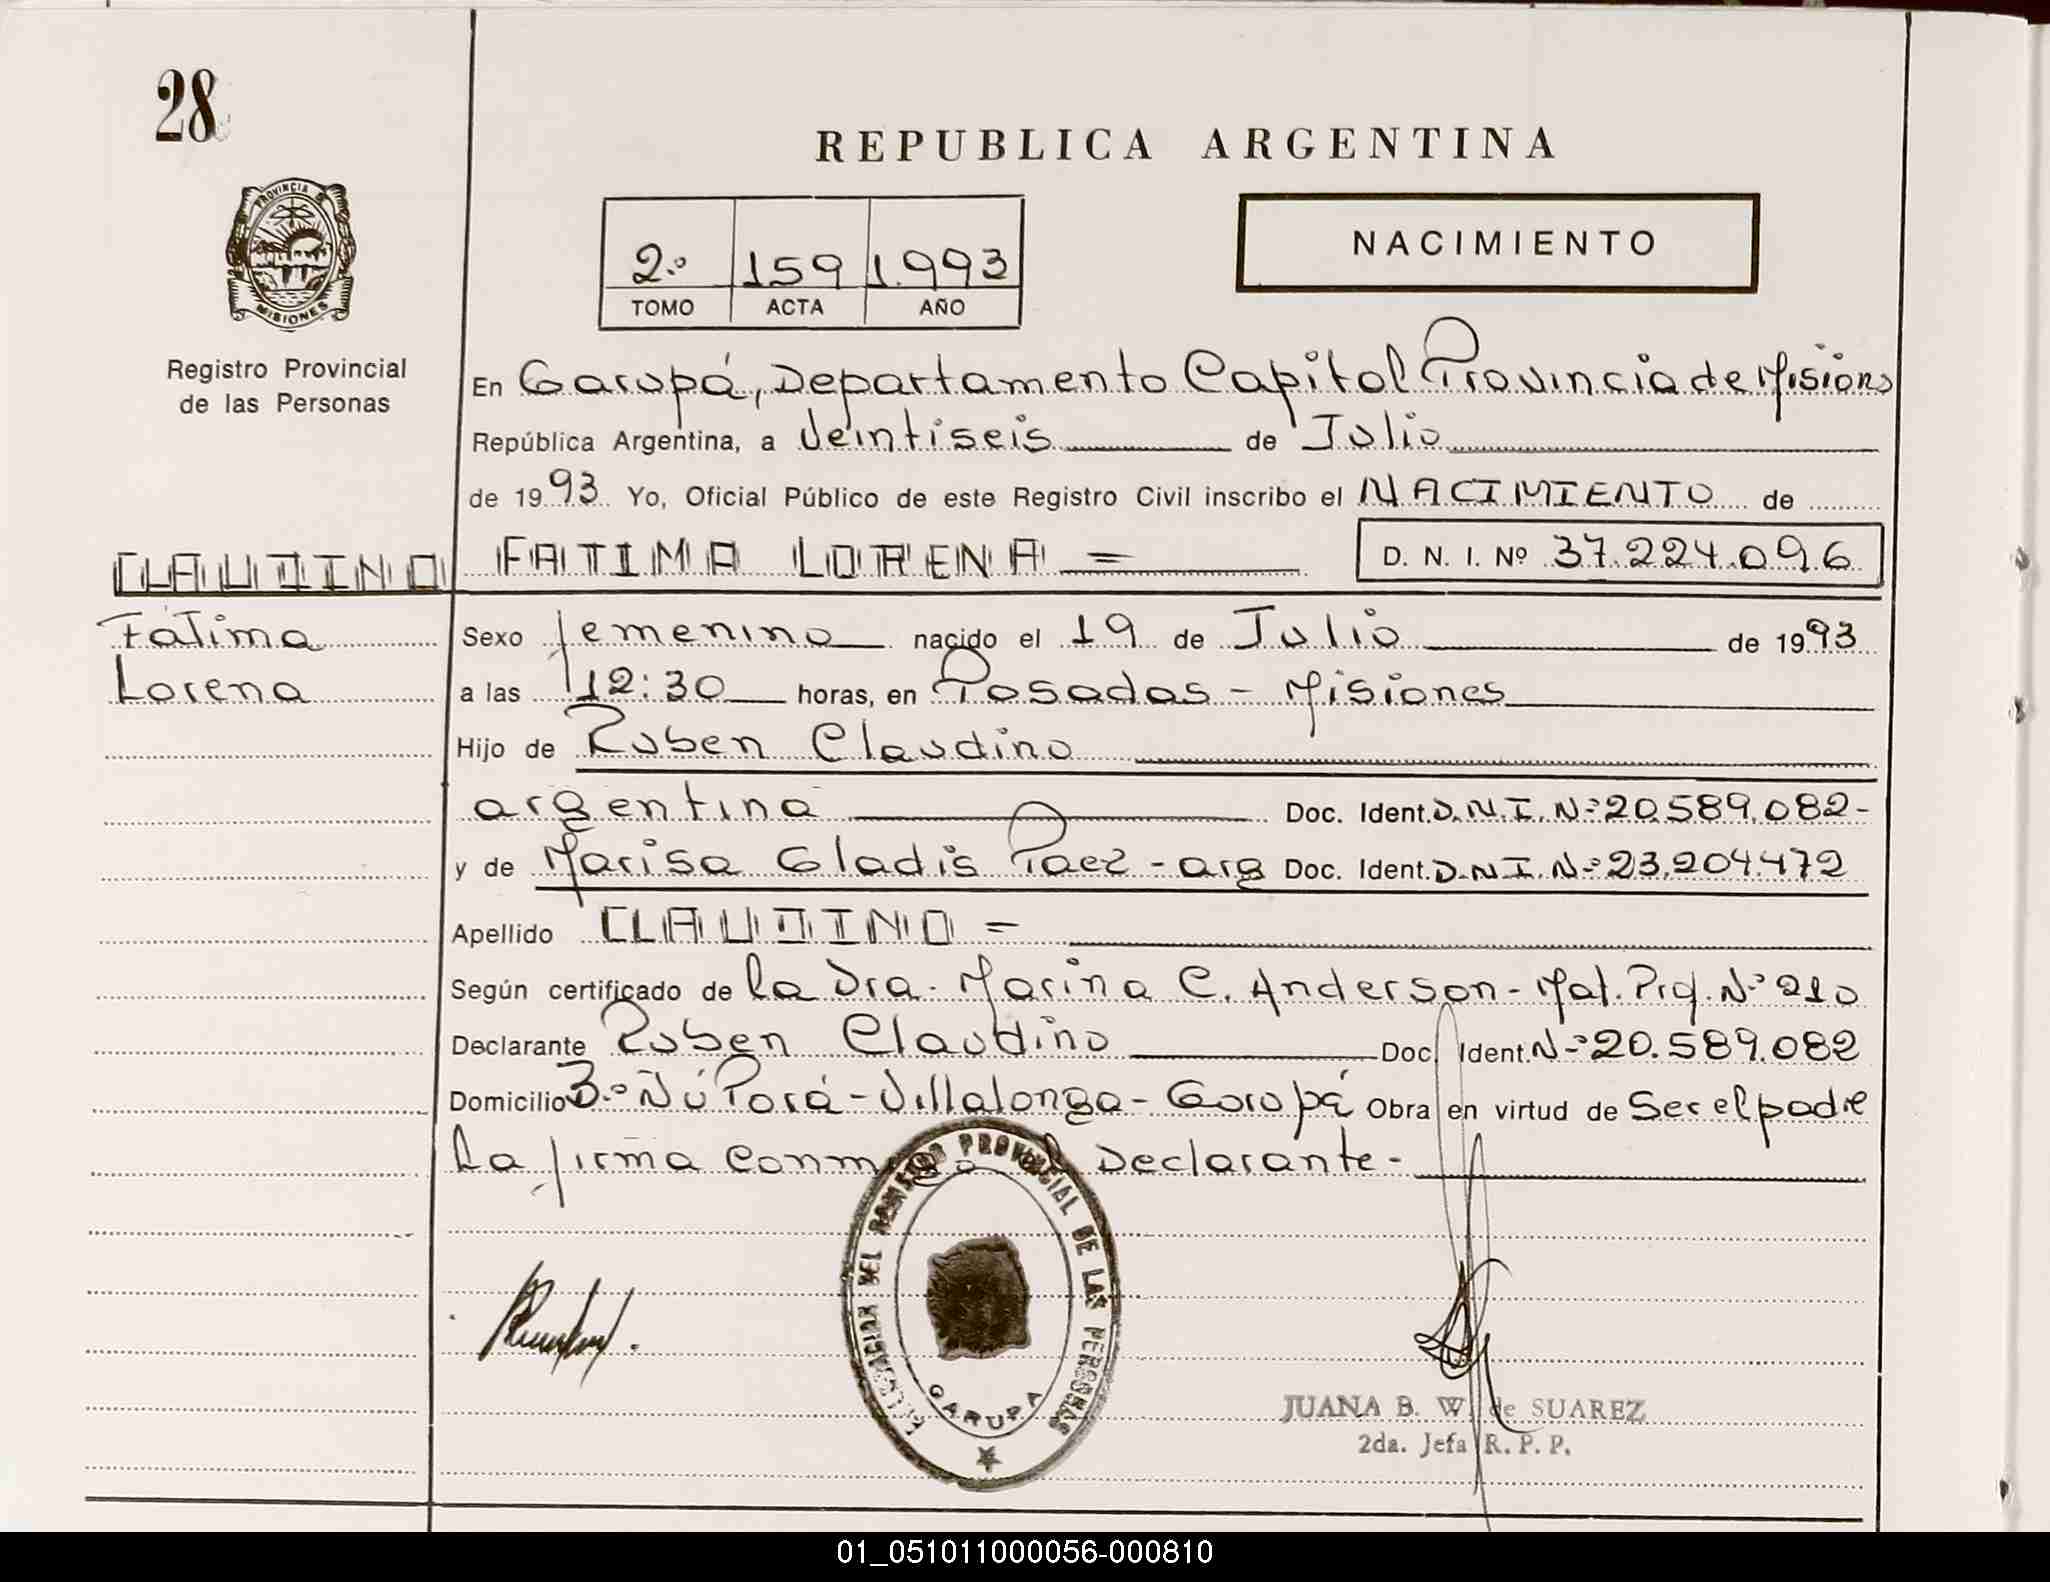 28
REPUBLICA ARGENTINA
PROVINCIA DE
MISIONES
Registro Provincial
de las Personas
2º 159 1.993
TOMO ACTA AÑO
NACIMIENTO
En Garupá, Departamento Capital Provincia de Misiones
República Argentina, a Veintiseis de Julio
de 1993 Yo, Oficial Público de este Registro Civil inscribo el NACIMIENTO de
CLAUDINO FATIMA LORENA = D. N. I. Nº 37.224.096
Fátima
Lorena
Sexo femenino nacido el 19 de Julio de 1993
a las 12:30 horas, en Posadas - Misiones
Hijo de Ruben Claudino
argentina Doc. Ident. D.N.I. Nº 20.589.082-
y de Marisa Gladis Paez - arg Doc. Ident. D.N.I. Nº 23.204.472
Apellido CLAUDINO =
Según certificado de la Dra. Marina C. Anderson - Mat. Prof. Nº 210
Declarante Ruben Claudino Doc. Ident. Nº 20.589.082
Domicilio Bº Ñú Porá - Villalonga - Garupá Obra en virtud de Ser el padre
la firma conmigo el Declarante -
DEL REGISTRO PROVINCIAL DE LAS PERSONAS
GARUPA
JUANA B. W. de SUAREZ
2da. Jefa R. P. P.
01_051011000056-000810